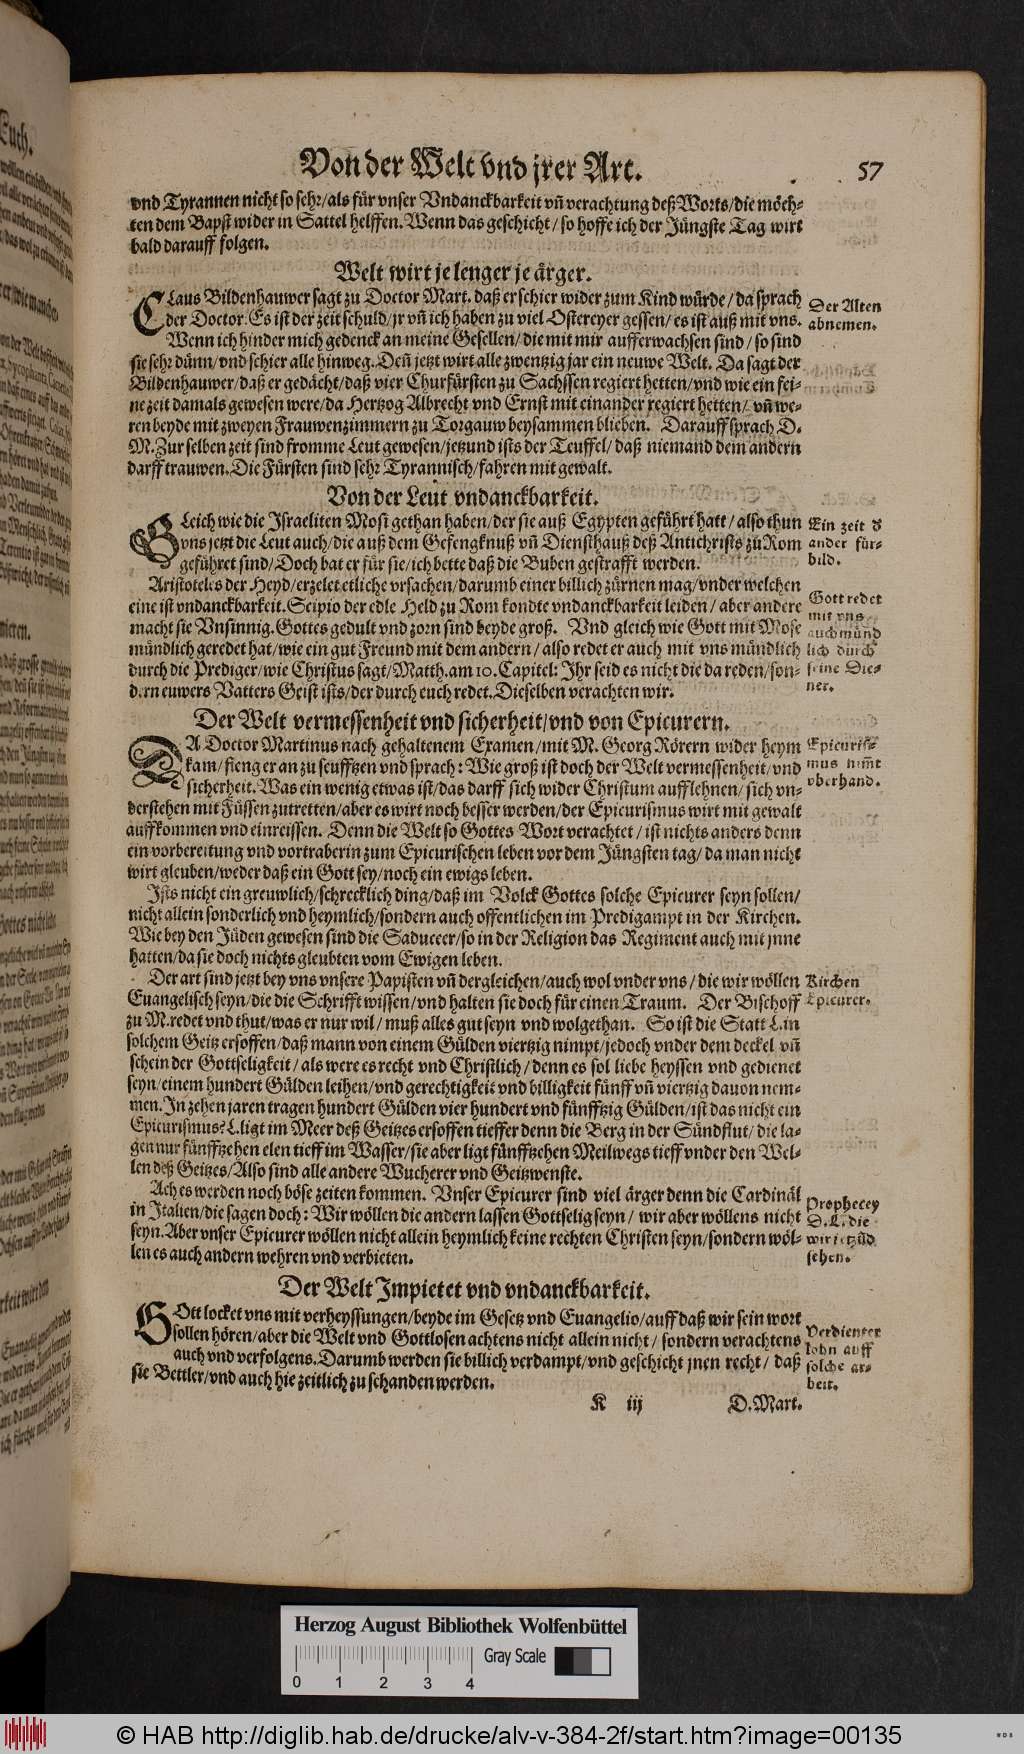 Von der Welt vnd jrer Art.
57
vnd Tyrannen nicht so sehr/als für vnser Vndanckbarkeit vñ verachtung deß Worts/die möch-
ten dem Bapst wider in Sattel helffen. Wenn das geschicht/so hoffe ich der Jüngste Tag wirt
bald darauff folgen.
Welt wirt je lenger je ärger.
CLaus Bildenhauwer sagt zu Doctor Mart. daß er schier wider zum Kind würde/da sprach
der Doctor: Es ist der zeit schuld/jr vñ ich haben zu viel Ostereyer gessen/es ist auß mit vns.
Wenn ich hinder mich gedenck an meine Gesellen/die mit mir aufferwachsen sind/so sind
sie sehr dünn/vnd schier alle hinweg. Deñ jetzt wirt alle zwentzig jar ein neuwe Welt. Da sagt der
Bildenhauwer/daß er gedächt/daß vier Churfürsten zu Sachssen regiert hetten/vnd wie ein fei-
ne zeit damals gewesen were/da Hertzog Albrecht vnd Ernst mit einander regiert hetten/vñ we-
ren beyde mit zweyen Frauwenzimmern zu Torgauw beysammen blieben. Darauff sprach D.
M. Zur selben zeit sind fromme Leut gewesen/jetzund ists der Teuffel/daß niemand dem andern
darff trauwen. Die Fürsten sind sehr Tyrannisch/fahren mit gewalt.
Der Alten
abnemen.
Von der Leut vndanckbarkeit.
GLeich wie die Israeliten Mosi gethan haben/der sie auß Egypten geführt hatt/also thun
vns jetzt die Leut auch/die auß dem Gefengknuß vñ Diensthauß deß Antichrists zu Rom
geführet sind/Doch bat er für sie/ich bette daß die Buben gestrafft werden.
Aristoteles der Heyd/erzelet etliche vrsachen/darumb einer billich zürnen mag/vnder welchen
eine ist vndanckbarkeit. Scipio der edle Held zu Rom kondte vndanckbarkeit leiden/aber andere
macht sie Vnsinnig. Gottes gedult vnd zorn sind beyde groß. Vnd gleich wie Gott mit Mose
mündlich geredet hat/wie ein gut Freund mit dem andern/also redet er auch mit vns mündlich
durch die Prediger/wie Christus sagt/Matth. am 10. Capitel: Ihr seid es nicht die da reden/son-
dern euwers Vatters Geist ists/der durch euch redet. Dieselben verachten wir.
Ein zeit d
ander für-
bild.
Gott redet
mit vns
auch münd
lich durch
seine Die-
ner.
Der Welt vermessenheit vnd sicherheit/vnd von Epicurern.
DA Doctor Martinus nach gehaltenem Examen/mit M. Georg Rörern wider heym
kam/fieng er an zu seufftzen vnd sprach: Wie groß ist doch der Welt vermessenheit/vnd
sicherheit. Was ein wenig etwas ist/das darff sich wider Christum aufflehnen/sich vn-
derstehen mit Füssen zutretten/aber es wirt noch besser werden/der Epicurismus wirt mit gewalt
auffkommen vnd einreissen. Denn die Welt so Gottes Wort verachtet/ist nichts anders denn
ein vorbereitung vnd vortraberin zum Epicurischen leben vor dem Jüngsten tag/da man nicht
wirt gleuben/weder daß ein Gott sey/noch ein ewigs leben.
Ists nicht ein greuwlich/schrecklich ding/daß im Volck Gottes solche Epicurer seyn sollen/
nicht allein sonderlich vnd heymlich/sondern auch offentlichen im Predigampt in der Kirchen.
Wie bey den Jüden gewesen sind die Saduceer/so in der Religion das Regiment auch mit jnne
hatten/da sie doch nichts gleubten vom Ewigen leben.
Der art sind jetzt bey vns vnsere Papisten vñ dergleichen/auch wol vnder vns/die wir wöllen
Euangelisch seyn/die die Schrifft wissen/vnd halten sie doch für einen Traum. Der Bischoff
zu M. redet vnd thut/was er nur wil/muß alles gut seyn vnd wolgethan. So ist die Statt L. in
solchem Geitz ersoffen/daß mann von einem Gülden viertzig nimpt/jedoch vnder dem deckel vñ
schein der Gottseligkeit/als were es recht vnd Christlich/denn es sol liebe heyssen vnd gedienet
seyn/einem hundert Gülden leihen/vnd gerechtigkeit vnd billigkeit fünff vñ viertzig dauon nem-
men. In zehen jaren tragen hundert Gülden vier hundert vnd fünfftzig Gülden/ist das nicht ein
Epicurismus? L. ligt im Meer deß Geitzes ersoffen tieffer denn die Berg in der Sündflut/die la-
gen nur fünfftzehen elen tieff im Wasser/sie aber ligt fünfftzehen Meilwegs tieff vnder den Wel-
len deß Geitzes/Also sind alle andere Wucherer vnd Geitzwenste.
Ach es werden noch böse zeiten kommen. Vnser Epicurer sind viel ärger denn die Cardinäl
in Italien/die sagen doch: Wir wöllen die andern lassen Gottselig seyn/wir aber wöllens nicht
seyn. Aber vnser Epicurer wöllen nicht allein heymlich keine rechten Christen seyn/sondern wöl-
len es auch andern wehren vnd verbieten.
Epicuris-
mus nim̃t
vberhand.
Kirchen
Epicurer.
Prophecey
D. L. die
wir jetzũd
sehen.
Der Welt Impietet vnd vndanckbarkeit.
GOtt locket vns mit verheyssungen/beyde im Gesetz vnd Euangelio/auff daß wir sein wort
sollen hören/aber die Welt vnd Gottlosen achtens nicht allein nicht/sondern verachtens
auch vnd verfolgens. Darumb werden sie billich verdampt/vnd geschicht jnen recht/daß
sie Bettler/vnd auch hie zeitlich zu schanden werden.
Verdienter
lohn auff
solche ar-
beit.
K iij
D. Mart.
Herzog August Bibliothek Wolfenbüttel
Gray Scale
0 1 2 3 4
© HAB http://diglib.hab.de/drucke/alv-v-384-2f/start.htm?image=00135